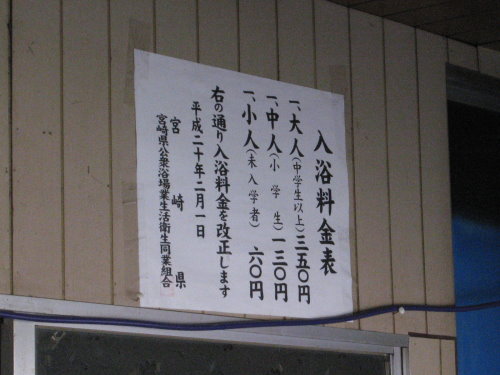 入浴料金表
一、大人(中学生以上)三五〇円
一、中人(小学生)一三〇円
一、小人(未入学者)六〇円
右の通り入浴料金を改正します
平成二十年二月一日
宮崎県
宮崎県公衆浴場業生活衛生同業組合